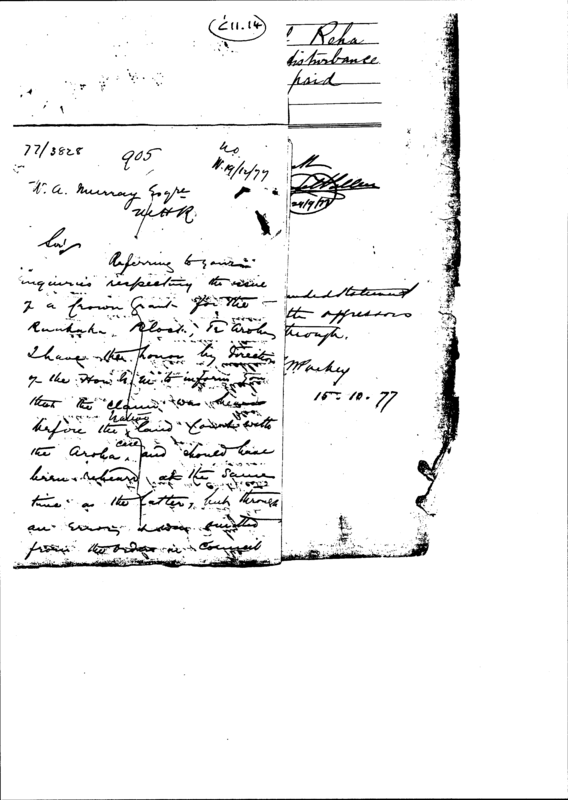 C11.14
Reha
disturbance
paid
77/3828
905
No
19/12/77
W. A. Murray Esqre
M.H.R.
Sir
Referring to your
inquiries respecting the issue
of a Crown Grant for the
Block, Te Aroha
I have the honor by direction
of the Hon. to inform you
that the claim was heard
before the Native Land Court with
the Aroha case, and should have
been reheard at the same
time as the latter, but through
an error, it was omitted
from the order in Council
the
through.
Mackay
15-10.77